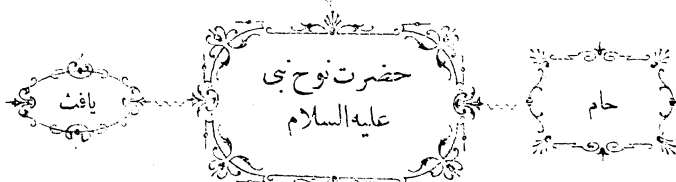 حام
حضرت نوح نبی
علیه السلام
یافث